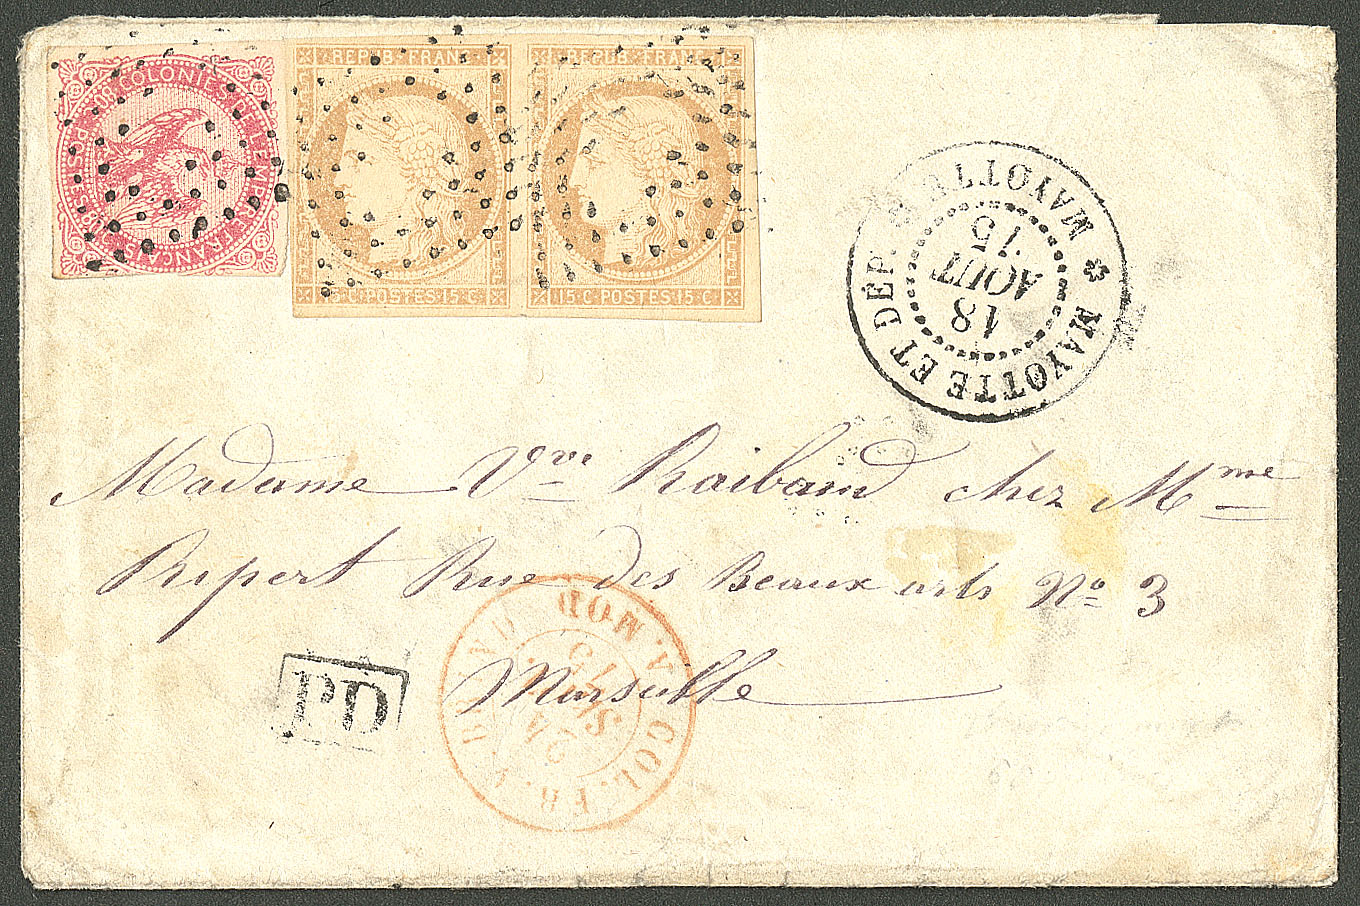 COLONIES DE L'EMPIRE FRANÇAIS
REPUB. FRANC.
15 C. POSTES 15 C.
REPUB. FRANC.
15 C. POSTES 15 C.
MAYOTTE ET DÉP.
MAYOTTE
18
AOUT
75
Madame Vve Raibaud chez Mme
Ripert Rue des Beaux arts No 3
Marseille
PD
COL. FR.
MOD
24
75